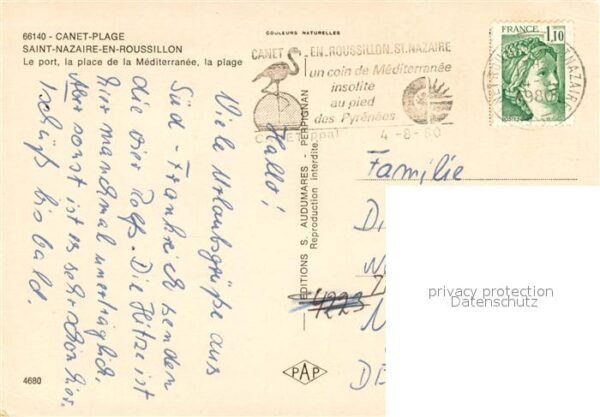 66140 - CANET-PLAGE
SAINT-NAZAIRE-EN-ROUSSILLON
Le port, la place de la Méditerranée, la plage
COULEURS NATURELLES
CANET EN-ROUSSILLON-St. NAZAIRE
un coin de Méditerranée
insolite
au pied
des Pyrénées
4-8-80
FRANCE
1,10
Hallo!
Viele Urlaubsgrüße aus
Süd-Frankreich senden
die vier Rolfs. Die Hitze ist
hier manchmal unerträglich.
Aber sonst ist es sehr schön hier.
Tschüß bis bald.
EDITIONS S. AUDUMARES - PERPIGNAN
Reproduction interdite.
Familie
4223
PAP
4680
privacy protection
Datenschutz